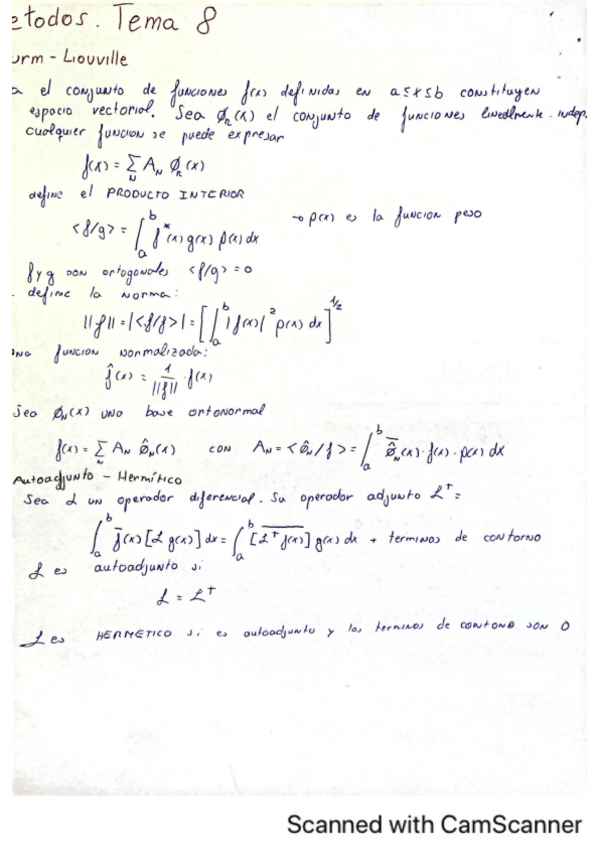 etodos. Tema 8
urm - Liouville
a el conjunto de funciones f(x) definidas en a≤x≤b constituyen
espacio vectorial. Sea Øₙ(x) el conjunto de funciones linealmente. indep.
cualquier funcion se puede expresar
f(x) = Σ_N A_N Øₙ(x)
define el PRODUCTO INTERIOR
<f/g> = ∫_a^b f*(x) g(x) ρ(x) dx → ρ(x) es la funcion peso
f y g son ortogonales <f/g> = 0
define la norma:
||f|| = |<f/f>| = [∫_a^b |f(x)|² ρ(x) dx]^{1/2}
una funcion normalizada:
f̂(x) = 1/||f|| · f(x)
Sea Ø_N(x) una base ortonormal
f(x) = Σ_N A_N Ø̂_N(x) con A_N = <Ø̂_N/f> = ∫_a^b \overline{Ø̂_N}(x) · f(x) · ρ(x) dx
Autoadjunto - Hermítico
Sea L un operador diferencial. Su operador adjunto L† =
∫_a^b \overline{f}(x) [L g(x)] dx = ∫_a^b [\overline{L† f(x)}] g(x) dx + terminos de contorno
L es autoadjunto si
L = L†
L es HERMETICO si es autoadjunto y los terminos de contono son 0
Scanned with CamScanner